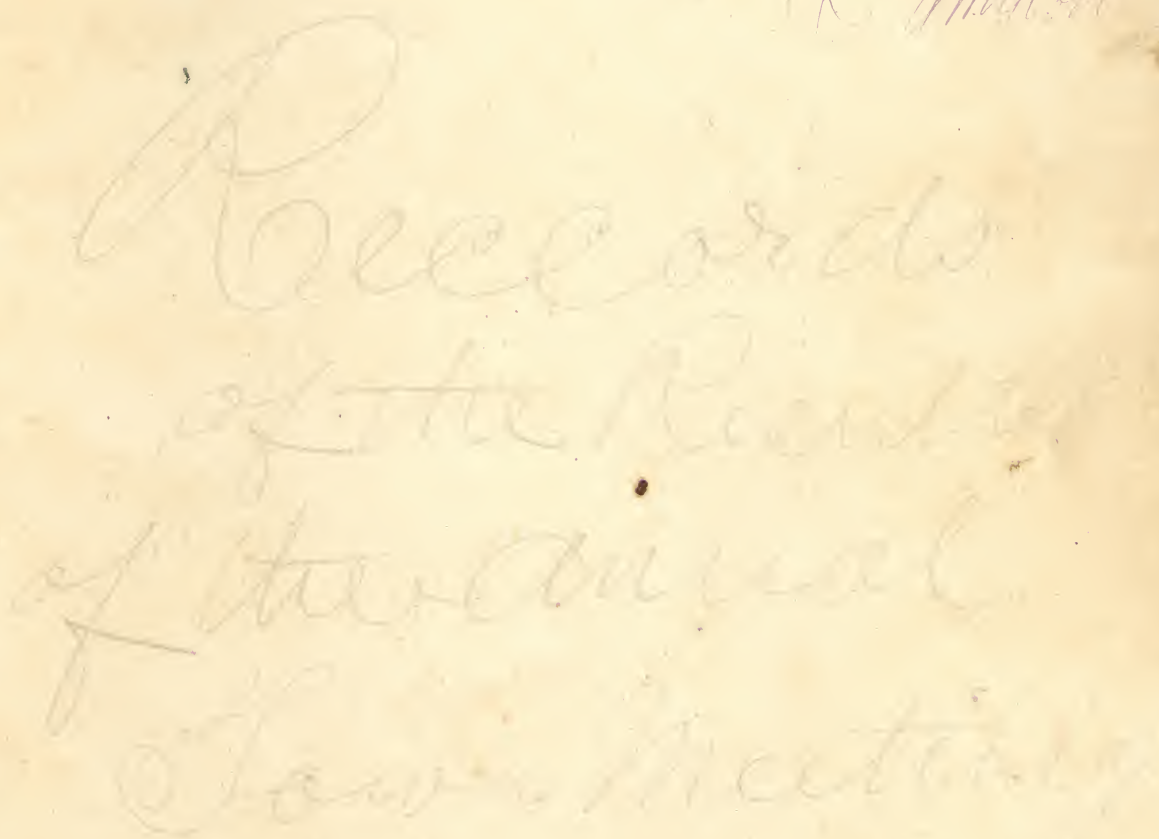 Reccords
of the
of the Anual
Town Meeting